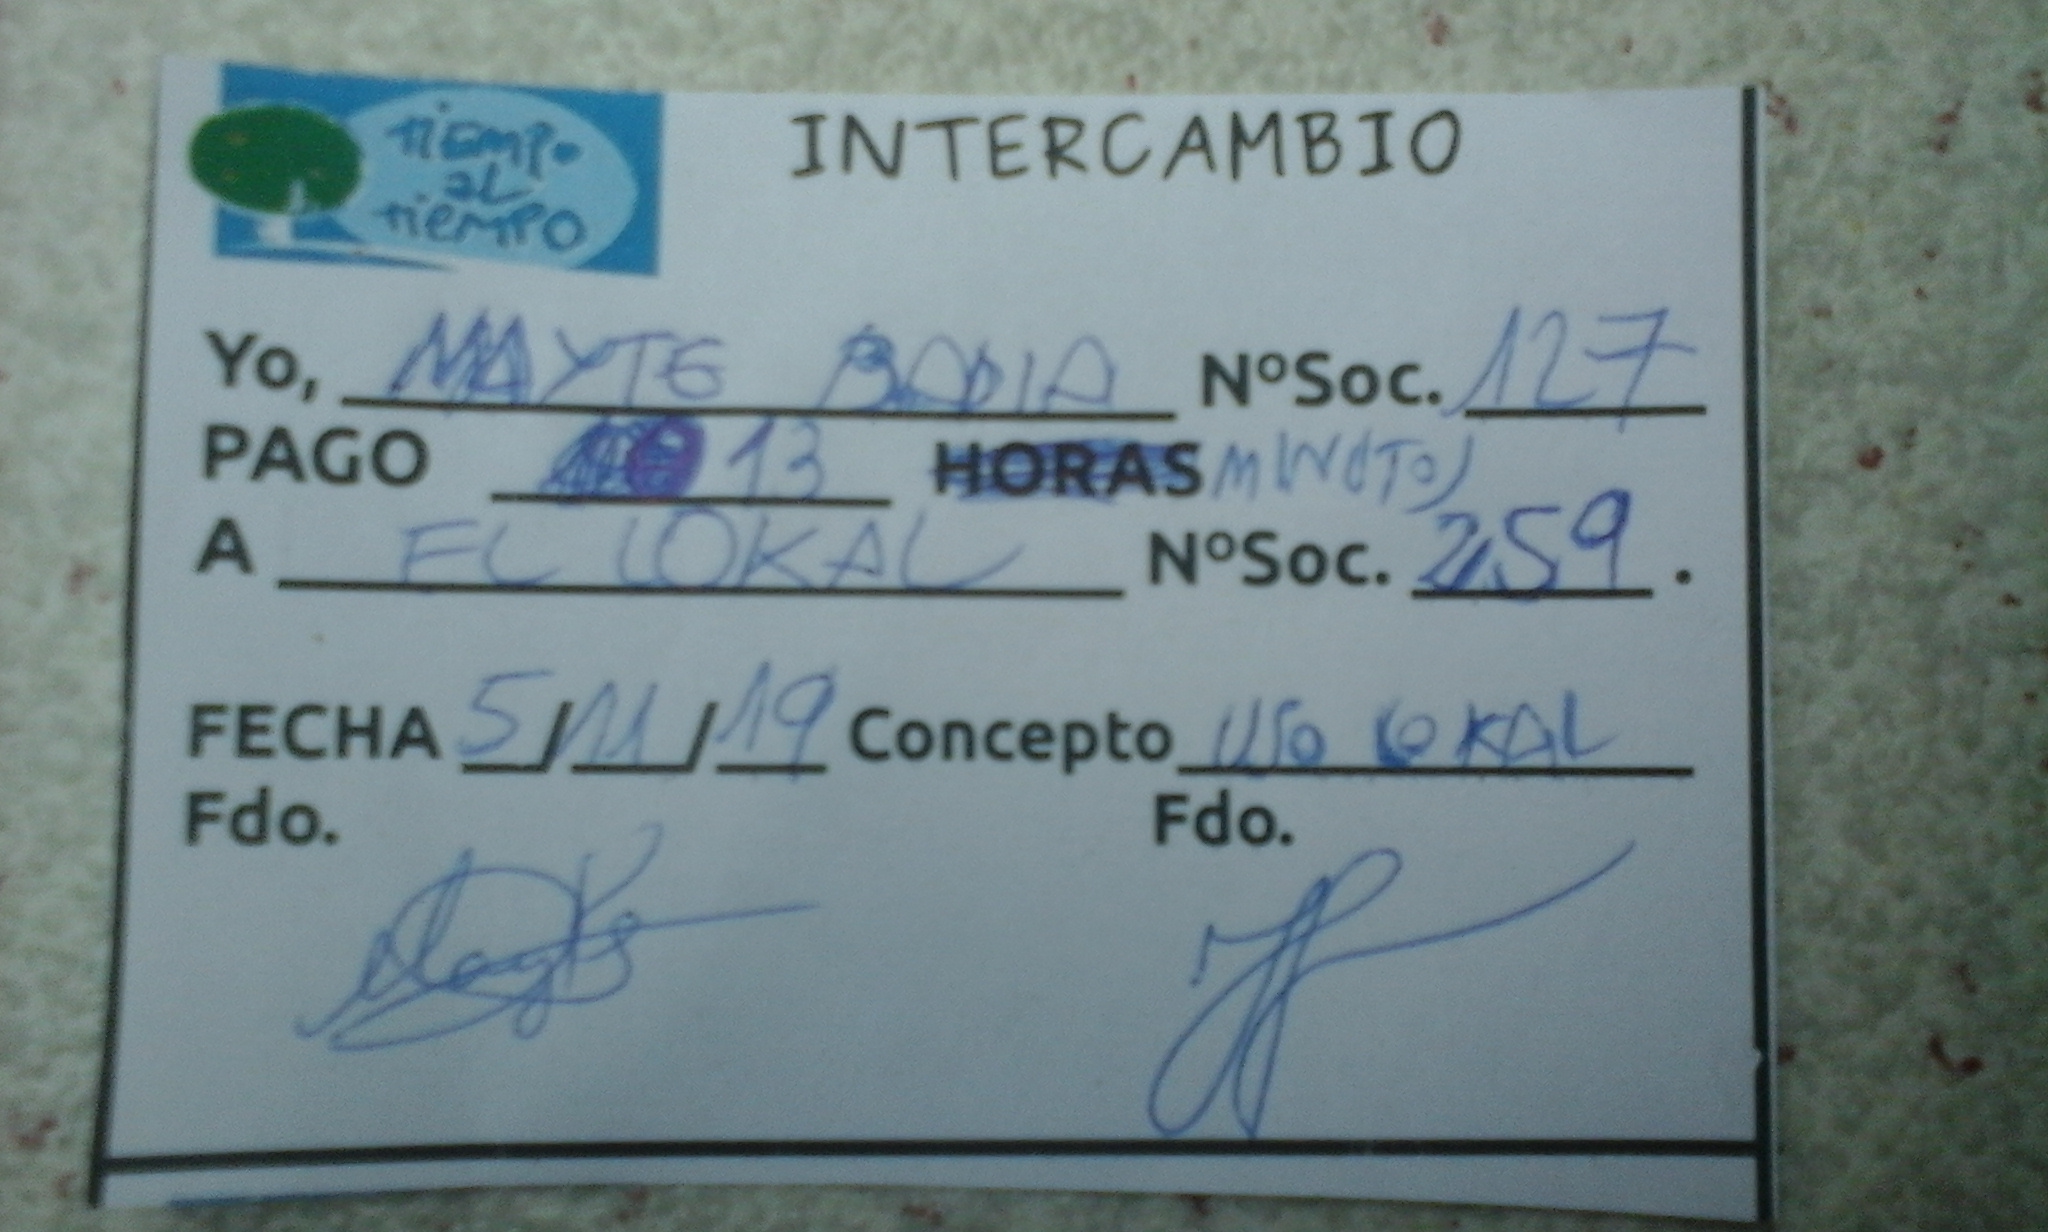 TIEMPO
AL
TIEMPO
INTERCAMBIO
Yo, MAYTE BADIA NºSoc. 127
PAGO 13 HORAS MINUTOS
A EL LOKAL NºSoc. 259 .
FECHA 5/11/19 Concepto USO LOKAL
Fdo. Fdo.